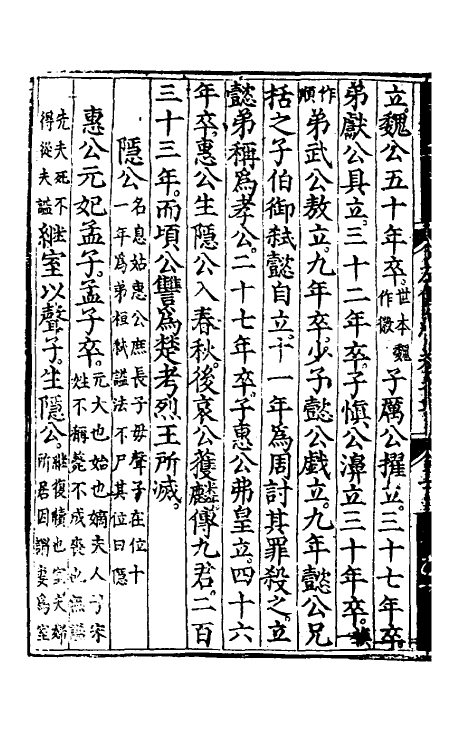 立魏公五十年卒世本魏作微子厲公擢立三十七年卒
弟獻公具立三十二年卒子慎公濞立三十年卒
作順弟武公敖立九年卒少子懿公戲立九年懿公兄
括之子伯御弒懿自立十一年為周討其罪殺之立
懿弟稱為孝公二十七年卒子惠公弗皇立四十六
年卒惠公生隱公入春秋後哀公獲麟傳九君二百
三十三年而頃公讐為楚考烈王所滅
隱公名息姑惠公庶長子母聲子在位十一年為弟桓弒謚法不尸其位曰隱
惠公元妃孟子孟子卒元大也始也嫡夫人子宋姓不稱薨不成喪也無謚
先夫死不得從夫謚繼室以聲子生隱公繼復續也室夫婦所居因謂妻為室